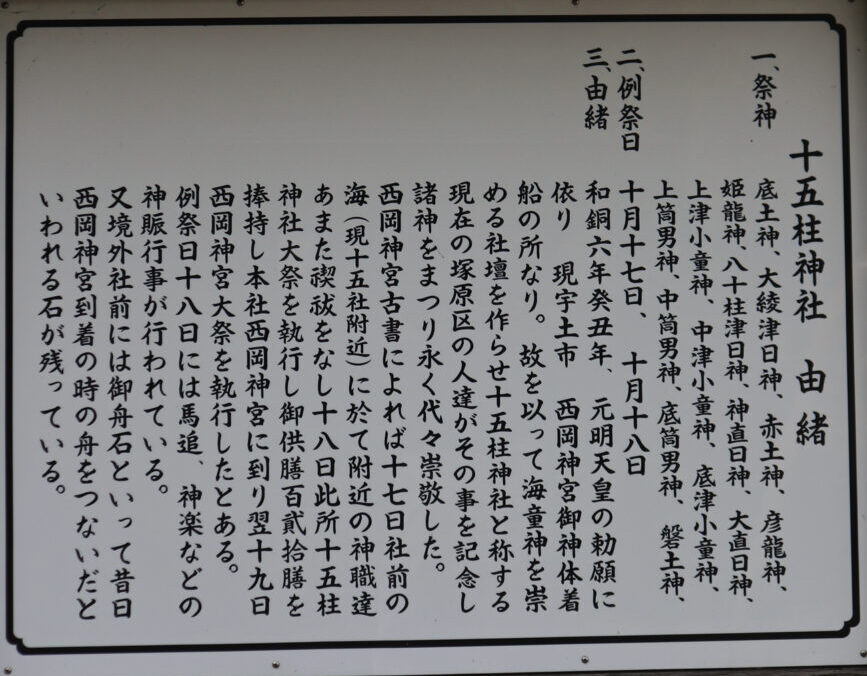 十五柱神社　由緒
一、祭神　底土神、大綾津日神、赤土神、彦龍神、
姫龍神、八十柱津日神、神直日神、大直日神、
上津小童神、中津小童神、底津小童神、
上筒男神、中筒男神、底筒男神、磐土神、
二、例祭日　十月十七日、　十月十八日
三、由緒　和銅六年癸丑年、元明天皇の勅願に
依り　現宇土市　西岡神宮御神体着
船の所なり。故を以って海童神を崇
める社壇を作らせ十五柱神社と称する
現在の塚原区の人達がその事を記念し
諸神をまつり永く代々崇敬した。
西岡神宮古書によれば十七日社前の
海（現十五社附近）に於て附近の神職達
あまた禊祓をなし十八日此所十五柱
神社大祭を執行し御供膳百貳拾膳を
捧持し本社西岡神宮に到り翌十九日
西岡神宮大祭を執行したとある。
例祭日十八日には馬追、神楽などの
神賑行事が行われている。
又境外社前には御舟石といって昔日
西岡神宮到着の時の舟をつないだと
いわれる石が残っている。